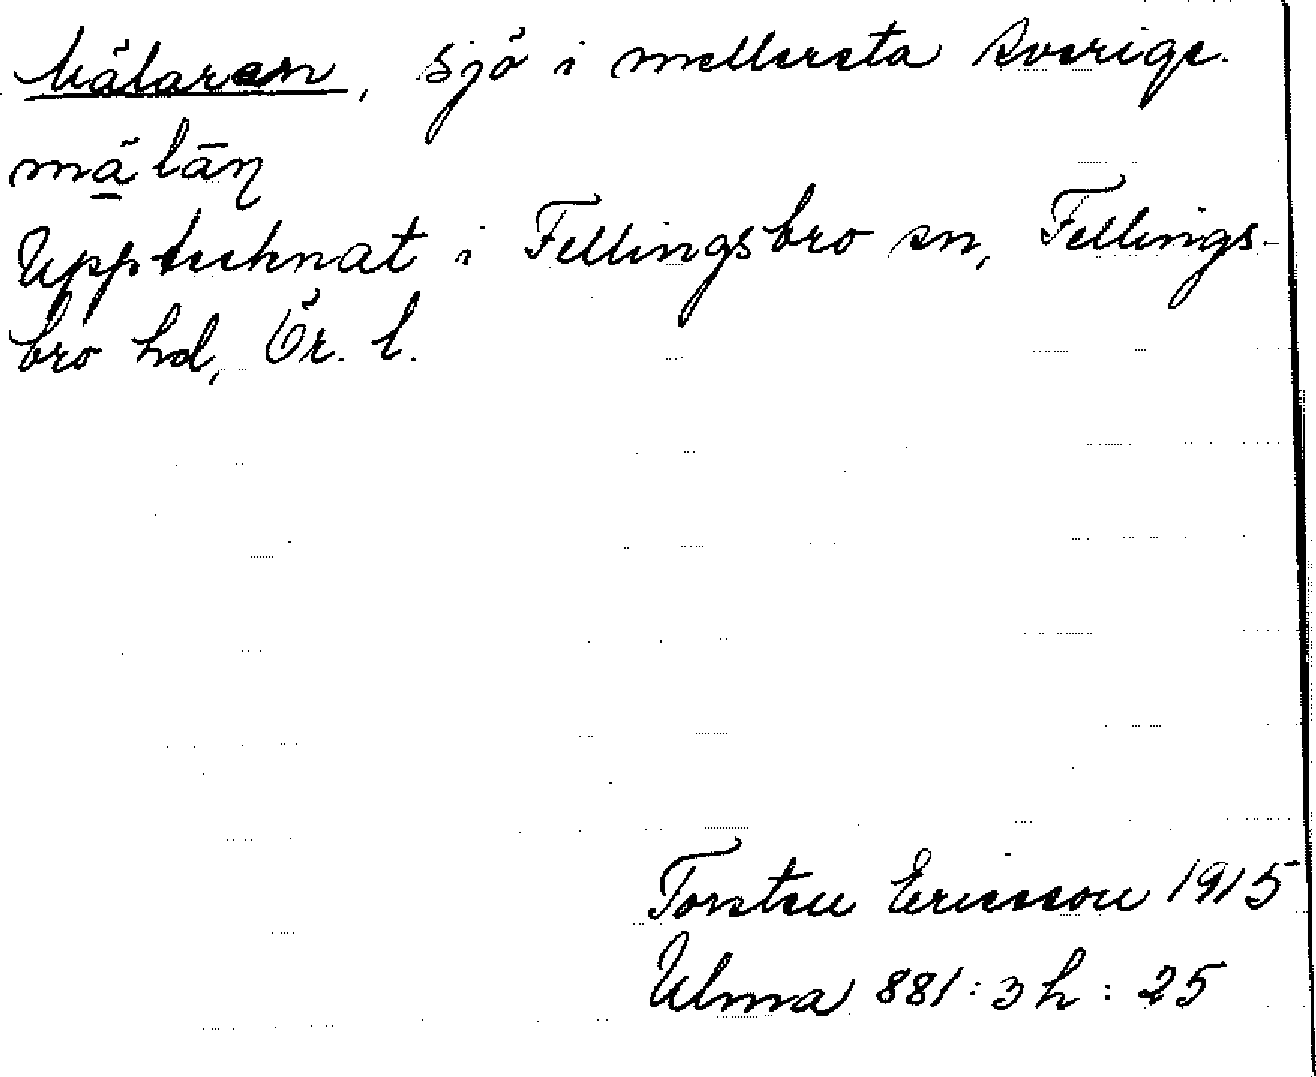 Mälaren, sjö i mellersta Sverige.
mä̠lāɳ
Upptecknat i Fellingsbro sn, Fellings-
bro hd, Ör. l.
Torsten Ericsson 1915
Ulma 881:3h:25